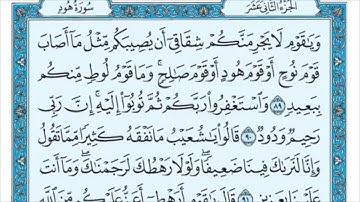 الجزء الثاني عشر سورة هود
وَيَٰقَوْمِ لَا يَجْرِمَنَّكُمْ شِقَاقِىٓ أَن يُصِيبَكُم مِّثْلُ مَآ أَصَابَ
قَوْمَ نُوحٍ أَوْ قَوْمَ هُودٍ أَوْ قَوْمَ صَٰلِحٍ ۚ وَمَا قَوْمُ لُوطٍ مِّنكُم
بِبَعِيدٍ ٨٩ وَٱسْتَغْفِرُوا۟ رَبَّكُمْ ثُمَّ تُوبُوٓا۟ إِلَيْهِ ۚ إِنَّ رَبِّى
رَحِيمٌ وَدُودٌ ٩٠ قَالُوا۟ يَٰشُعَيْبُ مَا نَفْقَهُ كَثِيرًا مِّمَّا تَقُولُ
وَإِنَّا لَنَرَىٰكَ فِينَا ضَعِيفًا ۖ وَلَوْلَا رَهْطُكَ لَرَجَمْنَٰكَ ۖ وَمَآ أَنتَ
عَلَيْنَا بِعَزِيزٍ ٩١ قَالَ يَٰقَوْمِ أَرَهْطِىٓ أَعَزُّ عَلَيْكُم مِّنَ ٱللَّهِ